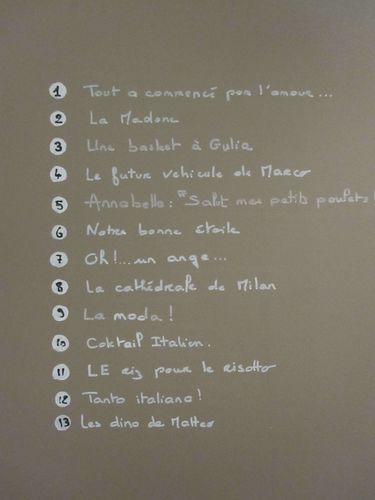 1 Tout a commencé par l'amour...
2 La Madone
3 Une basket à Gulia
4 Le futur vehicule de Marco
5 Annabella: "Salut mes petits poulets!
6 Notre bonne étoile
7 Oh!...un ange...
8 La cathédrale de Milan
9 La moda!
10 Coktail Italien.
11 LE riz pour le risotto
12 Tanto italiano!
13 Les dino de Matteo